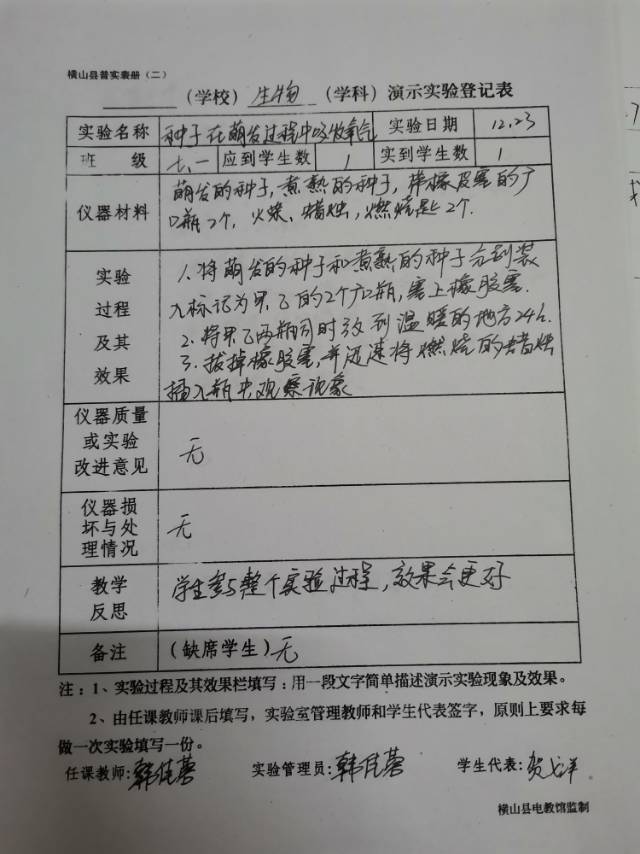 横山县普实表册（二）
（学校）生物（学科）演示实验登记表
实验名称 种子在萌发过程中吸收氧气 实验日期 12.23
班级 七、一 应到学生数 1 实到学生数 1
仪器材料 萌发的种子，煮熟的种子，带橡皮塞的广
口瓶2个，火柴、蜡烛，燃烧匙2个.
实验过程及其效果 1.将萌发的种子和煮熟的种子分别装
入标记为甲乙的2个广口瓶，塞上橡胶塞.
2.将甲乙两瓶同时放到温暖的地方24h.
3.拔掉橡胶塞，并迅速将燃烧的蜡烛
插入瓶中观察现象
仪器质量或实验改进意见 无
仪器损坏与处理情况 无
教学反思 学生参与整个实验过程，效果会更好
备注 （缺席学生）无
注：1、实验过程及其效果栏填写：用一段文字简单描述演示实验现象及效果。
2、由任课教师课后填写，实验室管理教师和学生代表签字，原则上要求每
做一次实验填写一份。
任课教师：韩佳蓉 实验管理员：韩佳蓉 学生代表：贺
横山县电教馆监制